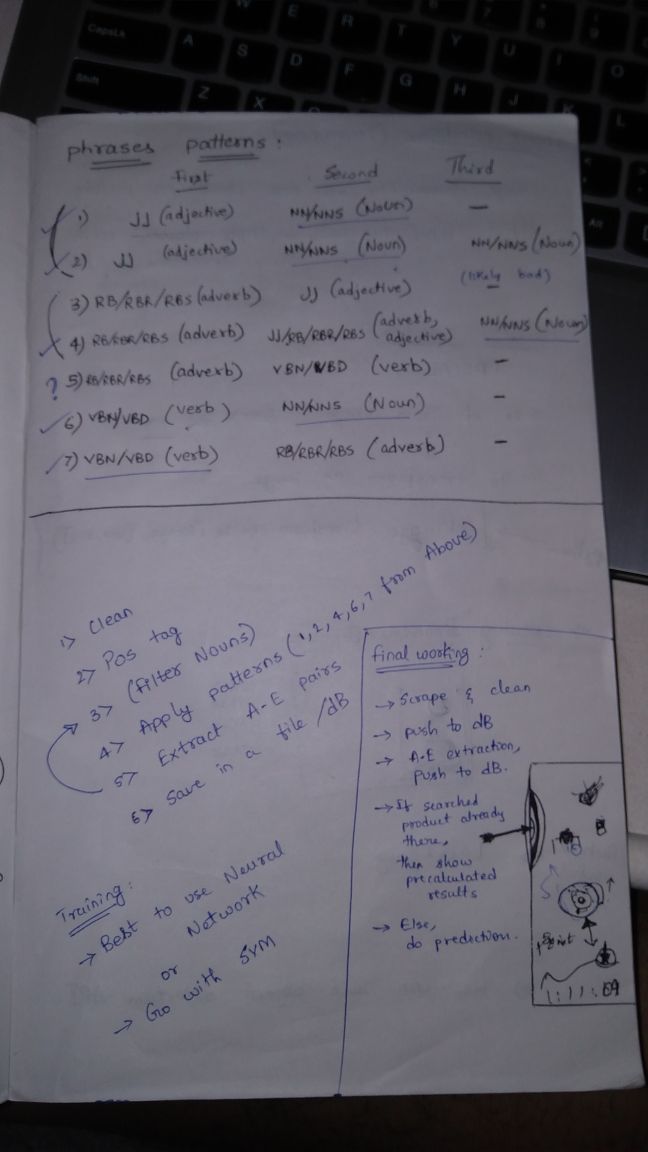 phrases patterns :
First Second Third
1) JJ (adjective) NN/NNS (Noun) —
2) JJ (adjective) NN/NNS (Noun) NN/NNS (Noun)
(likely bad)
3) RB/RBR/RBS (adverb) JJ (adjective) —
4) RB/RBR/RBS (adverb) JJ/RB/RBR/RBS (adverb, adjective) NN/NNS (Noun)
? 5) RB/RBR/RBS (adverb) VBN/VBD (verb) —
6) VBN/VBD (verb) NN/NNS (Noun) —
7) VBN/VBD (verb) RB/RBR/RBS (adverb) —
1> Clean
2> Pos tag
3> (Filter Nouns)
4> Apply patterns (1,2,4,6,7 from Above)
5> Extract A-E pairs
6> Save in a file/dB
Training:
→ Best to use Neural
Network
or
→ Go with SVM
final working :
→ Scrape & clean
→ push to dB
→ A-E extraction,
push to dB.
→ If searched
product already
there,
then show
precalculated
results
→ Else,
do prediction.
CapsLk
A
S
D
F
G
H
J
K
L
Shift
Z
X
W
E
R
T
Y
U
I
O